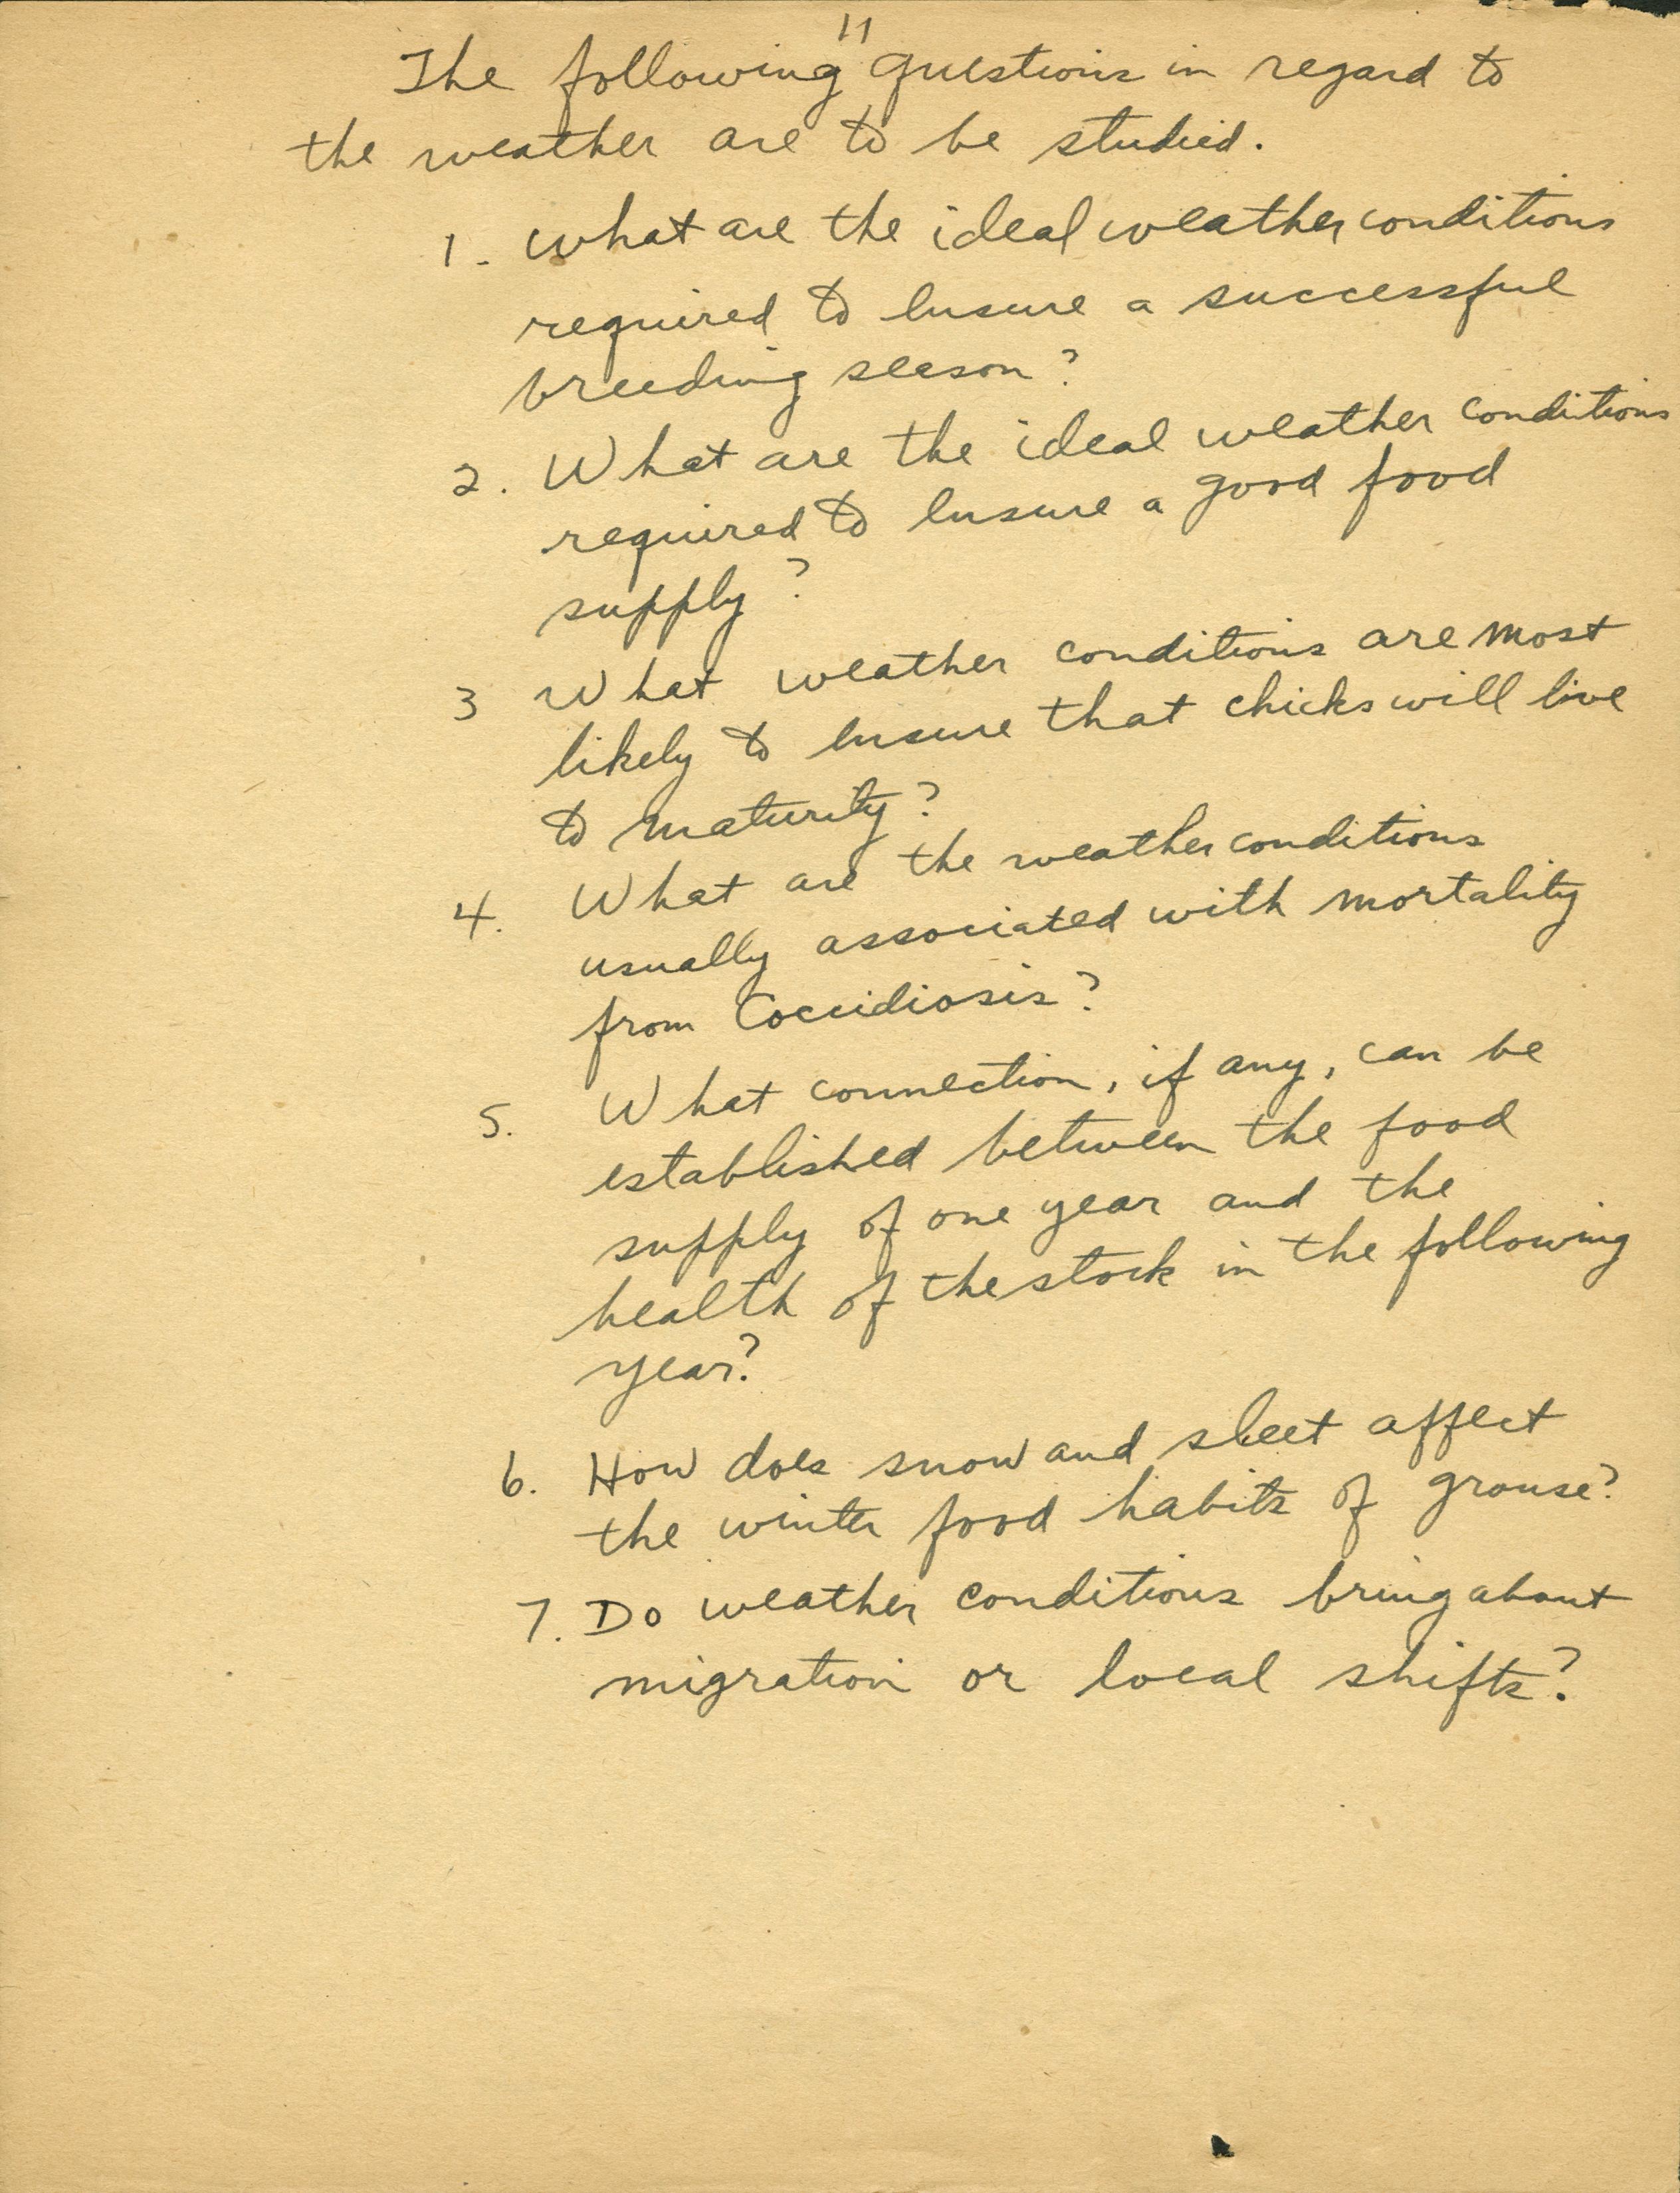 11
The following questions in regard to
the weather are to be studied.
1. What are the ideal weather conditions
required to ensure a successful
breeding season?
2. What are the ideal weather conditions
required to ensure a good food
supply?
3 What weather conditions are most
likely to ensure that chicks will live
to maturity?
4. What are the weather conditions
usually associated with mortality
from Coccidiosis?
5. What connection, if any, can be
established between the food
supply of one year and the
health of the stock in the following
year?
6. How does snow and sleet affect
the winter food habits of grouse?
7. Do weather conditions bring about
migration or local shifts?